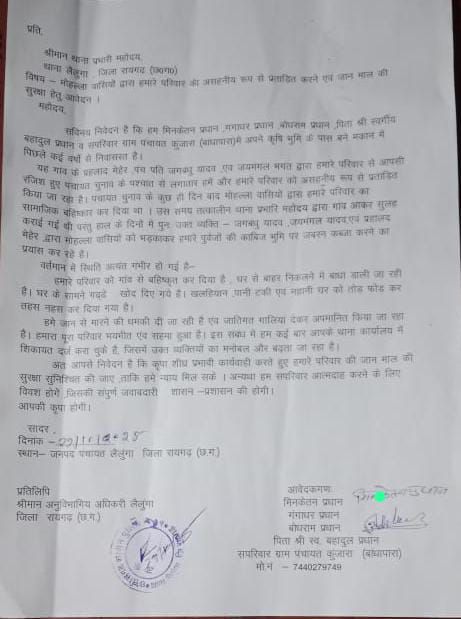 प्रति,
श्रीमान थाना प्रभारी महोदय,
थाना लैलुंगा , जिला रायगढ़ (छ०ग०)
विषय – मोहल्ला वासियों द्वारा हमारे परिवार को असहनीय रूप से प्रताड़ित करने एवं जान माल की
सुरक्षा हेतु आवेदन ।
महोदय,
सविनय निवेदन है कि हम मिनकेतन प्रधान ,गंगाधर प्रधान ,बोधराम प्रधान ,पिता श्री स्वर्गीय
बहादुल प्रधान व सपरिवार ग्राम पंचायत कुंजारा (बांधापारा)में अपने कृषि भूमि के पास बने मकान में
पिछले कई वर्षों से निवासरत है।
यह गांव के प्रहलाद मेहेर ,पंच पति जगबंधु यादव ,एवं जयमंगल भगत द्वारा हमारे परिवार से आपसी
रंजिश हुए पंचायत चुनाव के पश्चात से लगातार हमें और हमारे परिवार को असहनीय रूप से प्रताड़ित
किया जा रहा है। पंचायत चुनाव के कुछ ही दिन बाद मोहल्ला वासियों द्वारा हमारे परिवार का
सामाजिक बहिष्कार कर दिया था । उस समय तत्कालीन थाना प्रभारि महोदय द्वारा गांव आकर सुलह
कराई गई थी परंतु हाल के दिनों में पुनः उक्त व्यक्ति – जगबंधु यादव ,जयमंगल यादव,एवं प्रहालद
मेहेर ,द्वारा मोहल्ला वासियों को भड़काकर हमारे पुर्वजों की काबिज भूमि पर जबरन कब्जा करने का
प्रयास कर रहे है।
वर्तमान में स्थिति अत्यंत गंभीर हो गई है–
हमारे परिवार को गांव से बहिष्कृत कर दिया है , घर से बाहर निकलने में बाधा डाली जा रही
है। घर के सामने गढ्ढे खोद दिए गये है। खलहियान ,पानी टंकी एवं नहानी घर को तोड़ फोड़ कर
तहस नहस कर दिया गया है।
हमे जान से मारने की धमकी दी जा रही है एवं जातिगत गालियां देकर अपमानित किया जा रहा
है। हमारा पूरा परिवार भयभीत एवं सहमा हुआ है। इस संबंध में हम कई बार आपके थाना कार्यालय में
शिकायत दर्ज करा चुके है, जिसमें उक्त व्यक्तियों का मनोबल और बढ़ता जा रहा है।
अतः आपसे निवेदन है कि कृपा शीघ्र प्रभावी कार्यवाही करते हुए हमारे परिवार की जान माल की
सुरक्षा सुनिश्चित की जाए ,ताकि हमे न्याय मिल सके । अन्यथा हम सपरिवार आत्मदाह करने के लिए
विवश होंगे ,जिसकी संपूर्ण जवाबदारी शासन –प्रशासन की होगी।
आपकी कृपा होगी।
सादर ,
दिनांक –
स्थान– जनपद पंचायत लैलुंगा जिला रायगढ़ (छ.ग.)
प्रतिलिपि
श्रीमान अनुविभागिय अधिकरी लैलुंगा
जिला रायगढ़ (छ.ग.)
आवेदकगण:
मिनकेतन प्रधान
गंगाधर प्रधान
बोधराम प्रधान
पिता श्री स्व. बहादुल प्रधान
सपरिवार ग्राम पंचायत कुंजारा (बांधापारा)
मो.नं – 7440279749